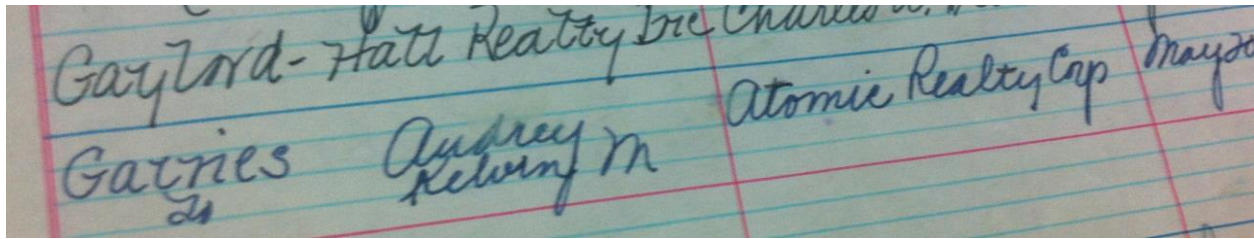 Gaylord-Hall Realty Inc Charles
Garnies Audrey M Atomic Realty Corp May 20